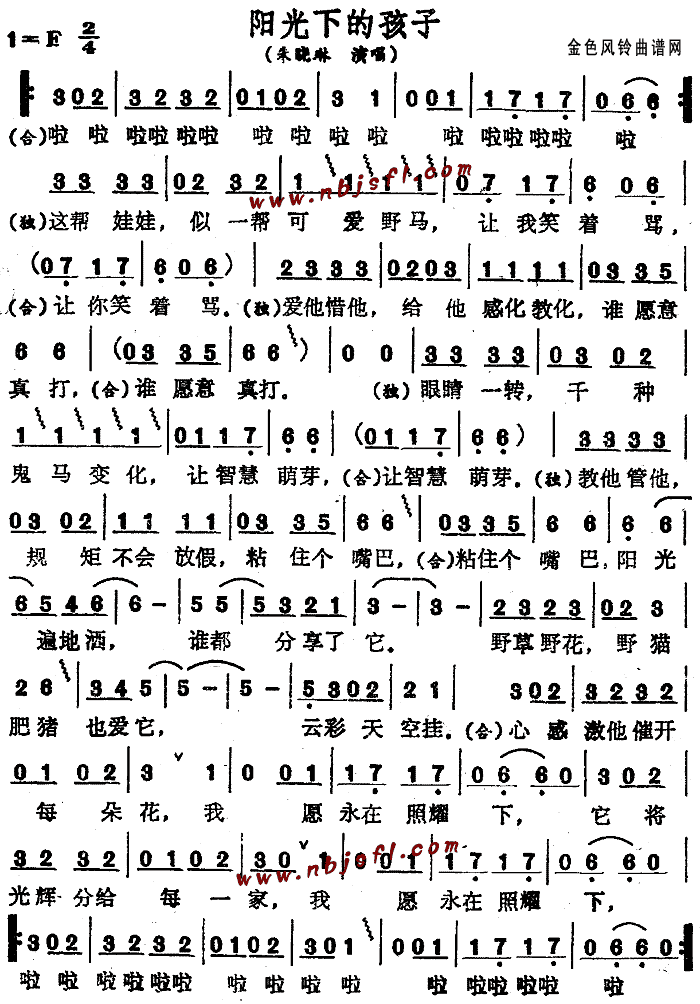 阳光下的孩子
1=E 2/4
(朱晓琳 演唱)
金色风铃曲谱网
302 3232 0102 3 1 001 1717 066
(合)啦 啦 啦啦 啦啦 啦 啦 啦 啦 啦 啦啦啦啦 啦
33 33 02 32 1 1 1 1 0717 6 06
www.nbjsfl.com
(独)这帮 娃娃, 似 一帮 可 爱野马, 让 我笑着 骂,
(07 17 6 06) 2333 0203 1111 0335
(合)让 你笑 着 骂。(独)爱他惜他, 给 他 感化教化, 谁愿意
6 6 (03 35 66) 0 0 33 33 03 02
真 打,(合)谁 愿意 真打。 (独)眼睛 一转, 千 种
1 1 1 1 0117 66 (0117 66) 3333
鬼 马 变 化, 让智慧 萌芽,(合)让智慧 萌芽。(独)教他管他,
03 02 11 11 03 35 66 0335 6 6 6 6
规 矩不会 放假, 粘 住个 嘴巴,(合)粘住个 嘴 巴,阳光
6546 6- 55 5321 3- 3- 2323 023
遍地洒, 谁都 分享了 它。 野草野花, 野猫
26 345 5- 5- 5302 21 302 3232
肥猪 也爱它, 云彩 天 空挂。(合)心 感 激他催开
01 02 3 ˅ 1 0 001 17 17 06 60 302
每 朵花, 我 愿 永在 照耀 下, 它 将
32 32 0102 30 ˅ 1 001 1717 06 60
www.nbjsfl.com
光辉 分给 每 一 家, 我 愿 永在 照耀 下,
302 3232 0102 301 001 1717 0660
啦 啦 啦啦 啦啦 啦 啦 啦 啦 啦 啦啦 啦啦 啦